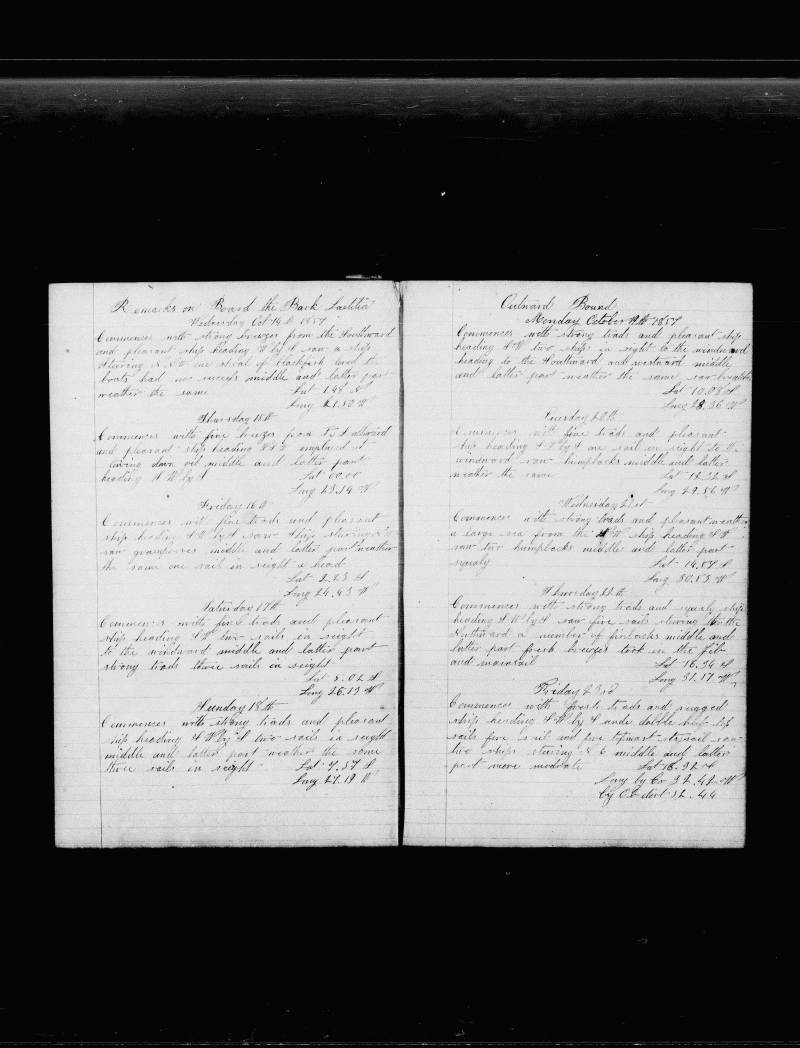 Remarks on Board the Bark Laetitia
Wednesday Oct 14th 1857
Commences with strong breezes from the Southward
and pleasant ship heading W by S saw a ship
steering N.N.E. one shoal of blackfish lowered the
boats had no success middle and latter part
weather the same Lat 1.48 N
Long 21.50 W
Thursday 15th
Commences with fine breezes from Southward
and pleasant ship heading employed at
down oil middle and latter part
heading S W by S Lat 00.00
Long 23.14 W
Friday 16th
Commences with fine trads and pleasant
ship heading S W by S saw a ship steering
saw grampuses middle and latter part weather
the same one sail in seight a head
Lat 2.23 S
Long 24.43 W
Saturday 17th
Commences with fine trads and pleasant
ship heading S W two sails in seight
to the windward middle and latter part
strong trads three sails in seight
Lat 5.02 S
Long 26.13 W
Sunday 18th
Commences with strong trads and pleasant
ship heading S W by S two sails in seight
middle and latter part weather the same
three sails in seight Lat 7.37 S
Long 27.19 W
Outward Bound
Monday October 19th 1857
Commences with strong trads and pleasant ship
heading S W two ships in sight to the windward
heading to the Southward and westward middle
and latter part weather the same saw
Lat 10.08 S
Long 28.36 W
Tuesday 20th
Commences with fine trads and pleasant
ship heading S W by S one sail in sight to the
windward saw humpbacks middle and latter
weather the same Lat 12.32 S
Long 29.56 W
Wednesday 21st
Commences with strong trads and pleasant weather
a large sea from the S W ship heading S W
saw two humpbacks middle and latter part
squaly Lat 14.57 S
Long 30.53 W
Thursday 22th
Commences with strong trads and squaly ship
heading S W by S saw five sails steering to the
Northward a number of finbacks middle and
latter part fresh breezes took in the Jib
and mainsail Lat 16.34 S
Long 31.17 W
Friday 23rd
Commences with fresh trads and rugged
ship heading S W by S under dobble reef top
sails fore sail and fore topmast staysail saw
two ships steering N E middle and latter
part more moderate Lat 18.32 S
Long by Cr 32.42 W
by O.C. dert 32.44